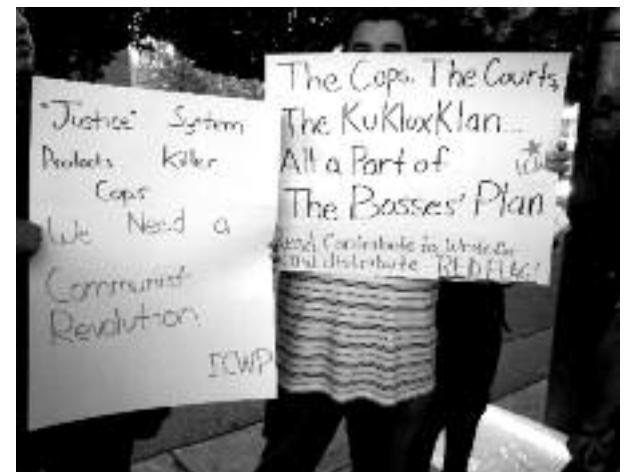 "Justice" System
Protects Killer
Cops
We Need a
Communist
Revolution
ICWP
The Cops. The Courts,
The KuKluxKlan...
All a Part of
The Bosses' Plan
Read, Contribute to, Write for
and distribute RED FLAG!